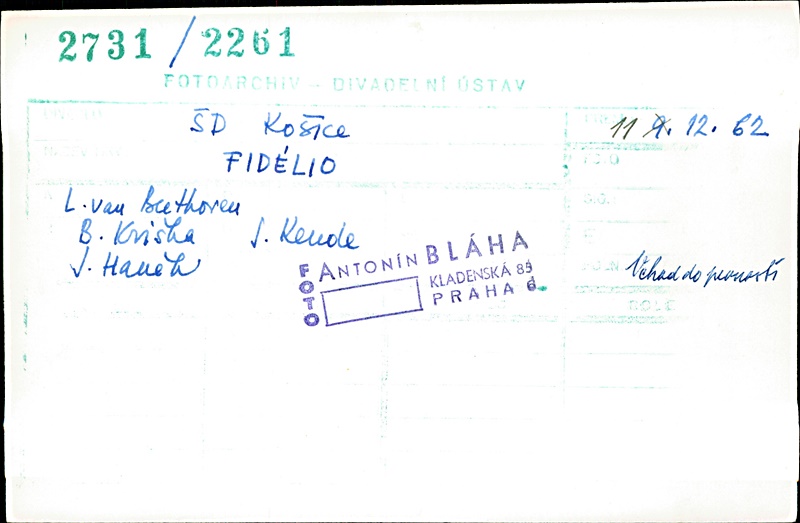 2731 / 2261
FOTOARCHIV – DIVADELNÍ ÚSTAV
ŠD Košice
11. 12. 62
FIDÉLIO
L. van Beethoven
B. Kriška J. Kende
J. Hanák
FOTO ANTONÍN BLÁHA
KLADENSKÁ 85
PRAHA 6
Vchod do pevnosti